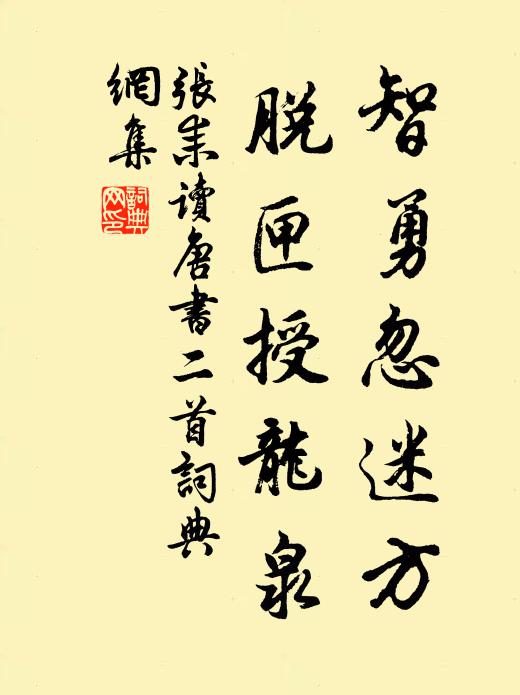 智勇忽迷方
脱匣授龍泉
張耒讀唐書二首詞典
網集
詞典網印